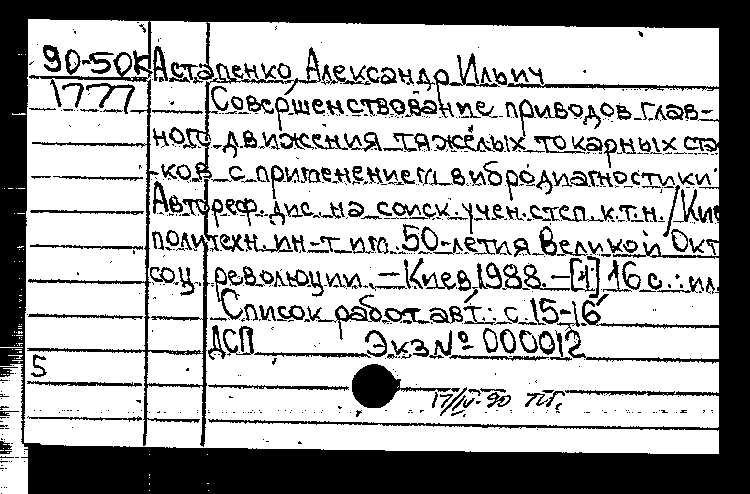 90-50К Астапенко, Александр Ильич
1777 Совершенствование приводов глав-
ного движения тяжёлых токарных ста
-ков с применением вибродиагностики:
Автореф. дис. на соиск. учен. степ. к.т.н. / Кие
политехн. ин-т им. 50-летия Великой Окт
соц революции. – Киев, 1988. – [1] 16 с. : ил.
Список работ авт.: с. 15-16
ДСП Экз № 000012
5
17/IV-90